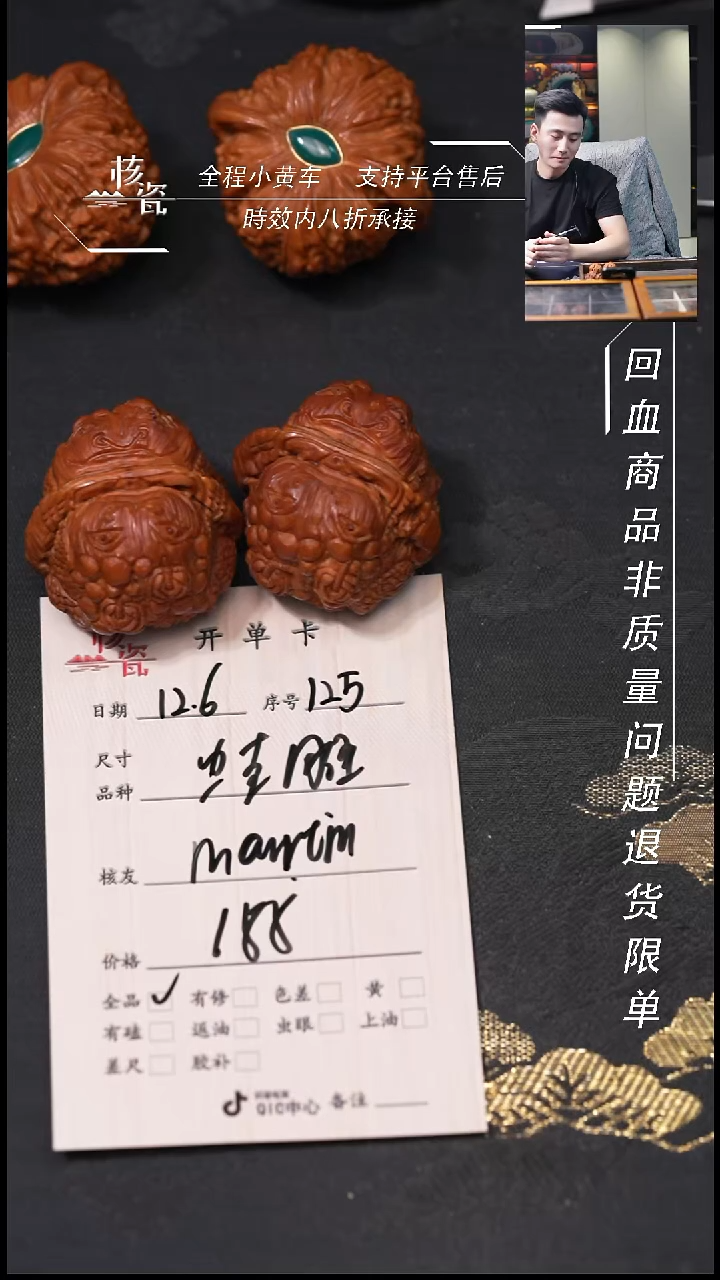 核瓷
全程小黄车 支持平台售后
時效内八折承接
回血商品非质量问题退货限单
核瓷
开单卡
日期 12.6 序号 125
尺寸
品种
核友
价格 188
全品 ✓ 有修 色差 黄
有磕 返油 虫眼 上油
差尺 胶补
QIC中心 备注